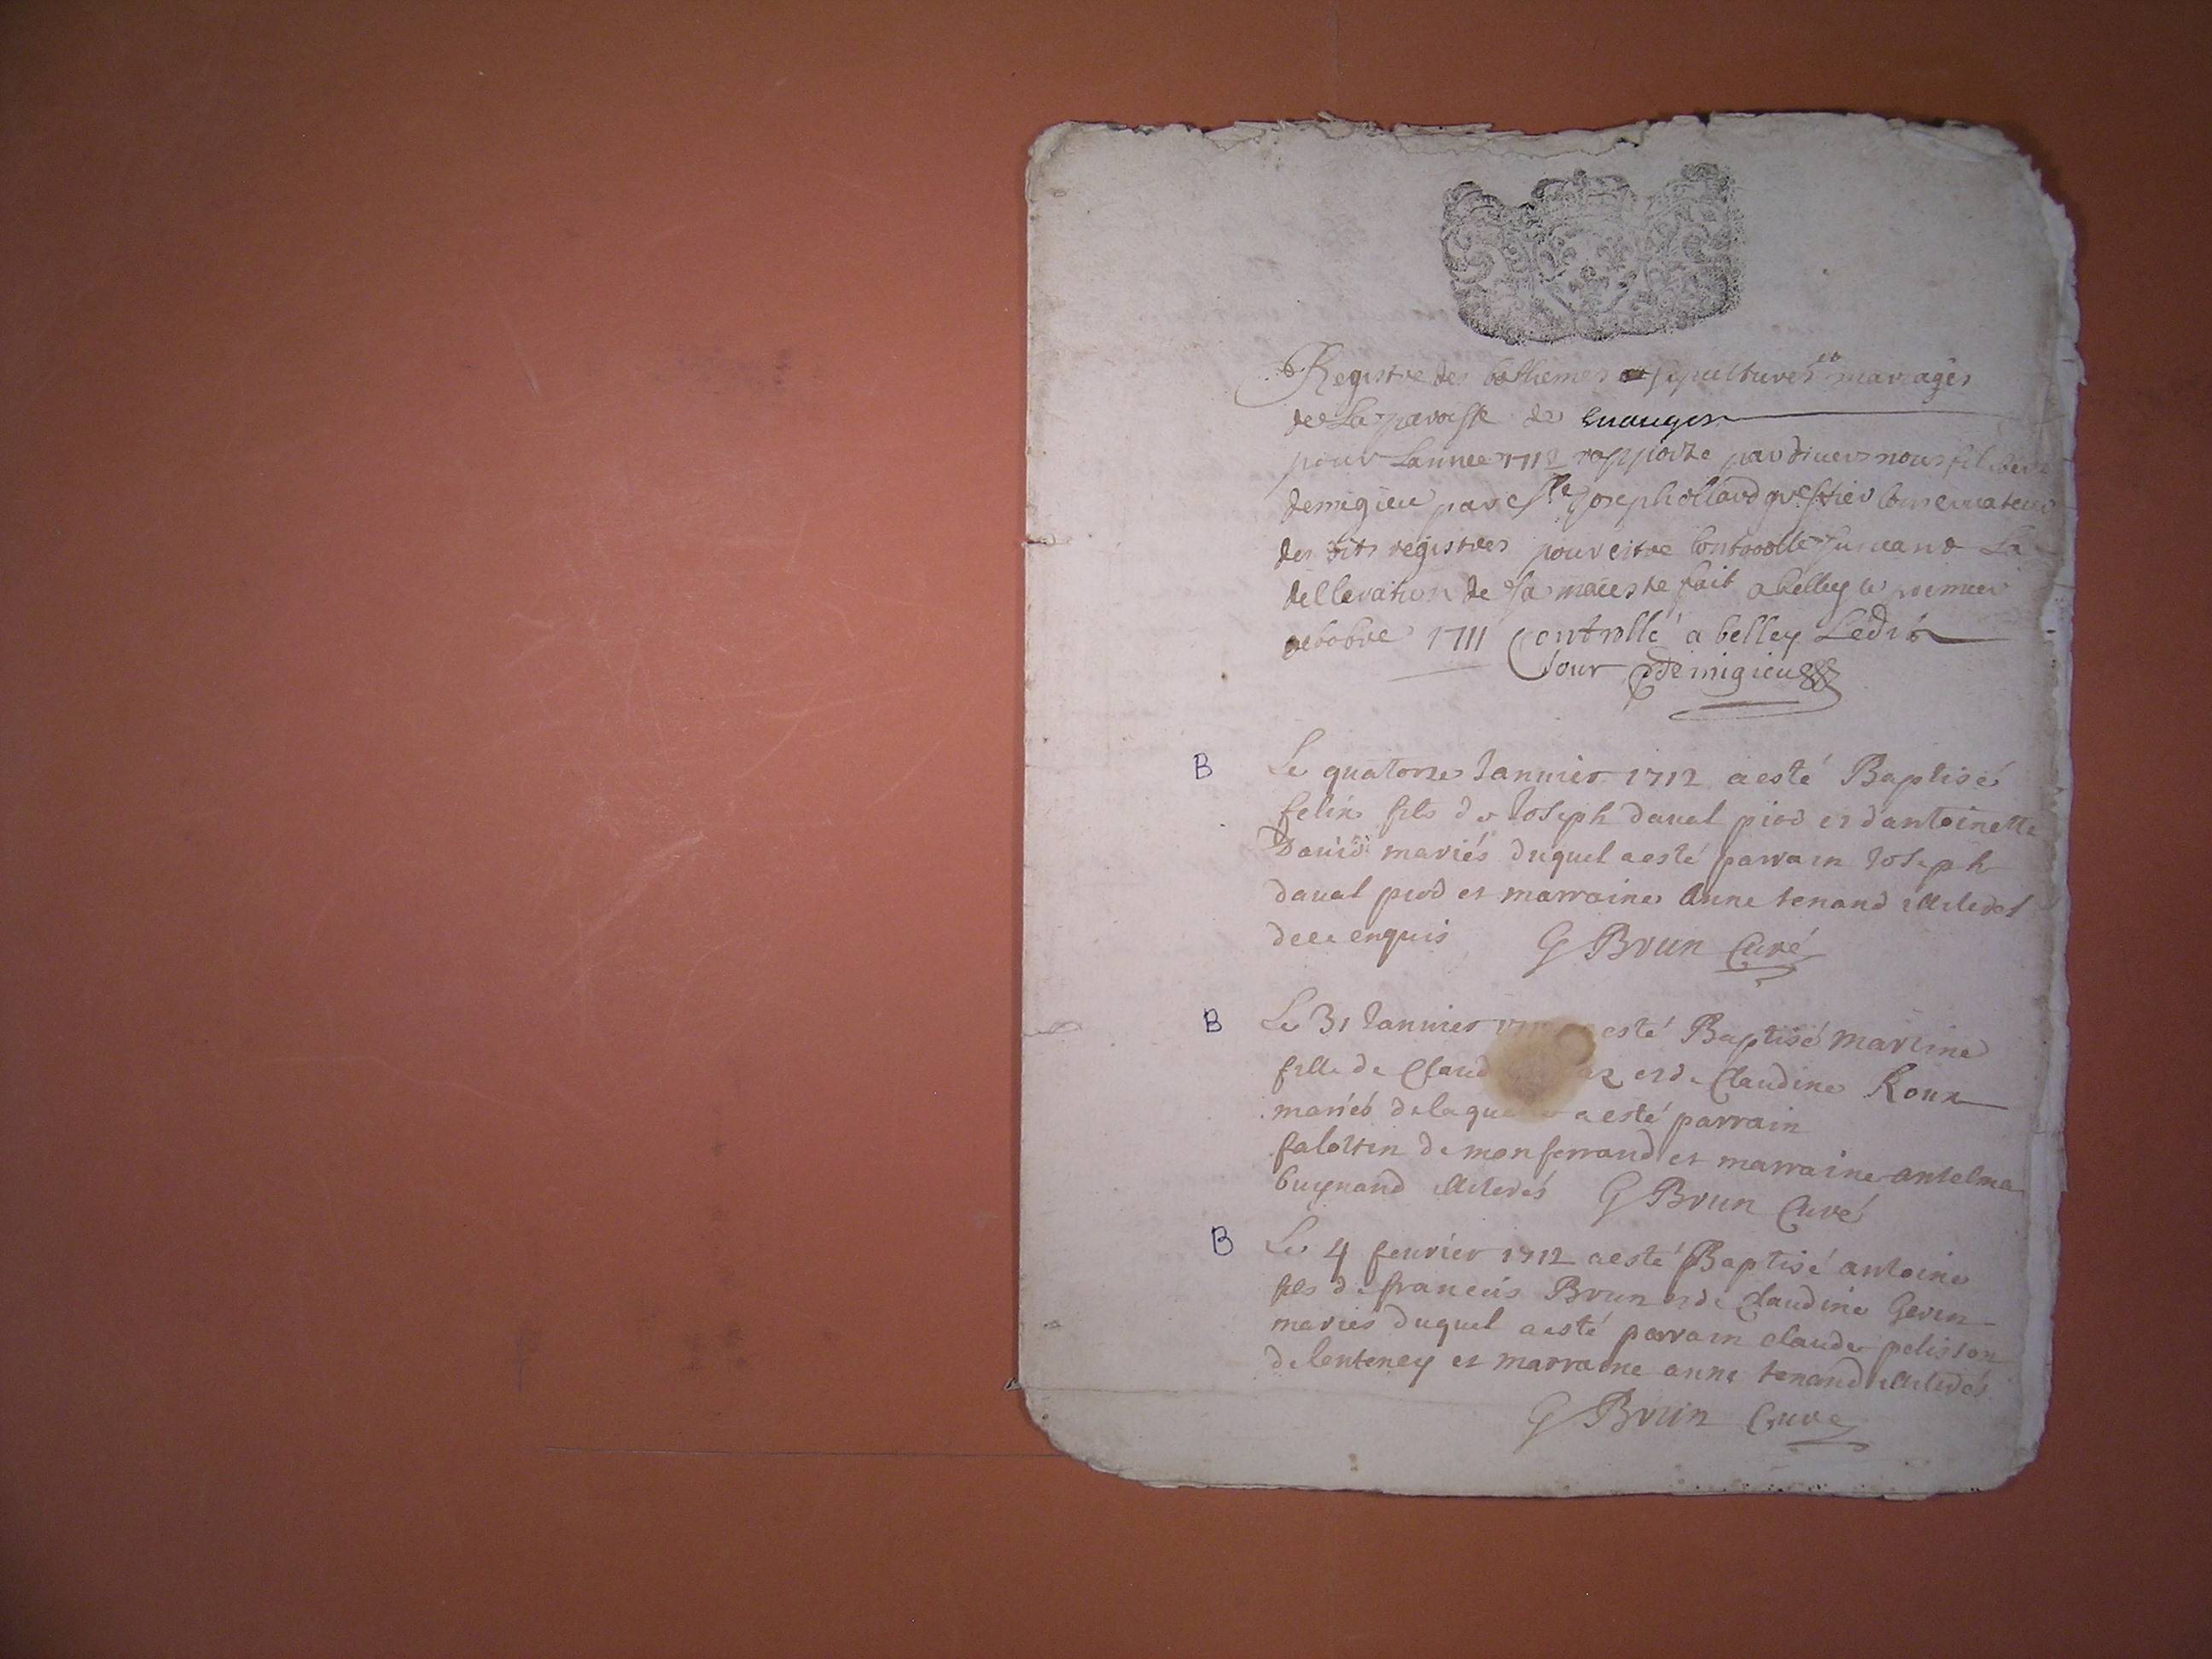 Registre des bathemes sepultures et mariages
de La paroisse de Enauges
pour Lannee 1712 rapporte par
demigieu par Joseph greffier Conservateur
des dits registres pour estre Controolle suivant La
delleration de sa maieste fait a belley le premier
octobre 1711 Controllé a belley Ledit
Jour Demigieu
B Le quatorze Januier 1712 a esté Baptisé
felix fils de Joseph daual piod et dantoinette
Dauid mariés duquel a esté parrain Joseph
daual piod et marraine Anne tenand illiterés
de ce enquis G Brun Curé
B Le 31 Januier esté Baptisé Martine
fille de Claud et de Claudine Roux
mariés de laque a esté parrain
de monferrand et marraine antelma
buynand illiterés G Brun Curé
B Le 4 feurier 1712 a esté Baptisé antoine
fils de francois Brun et de Claudine Gerin
mariés duquel a esté parrain claude pelisson
de lenteney et marraine anne tenand illiterés
G Brun Curé